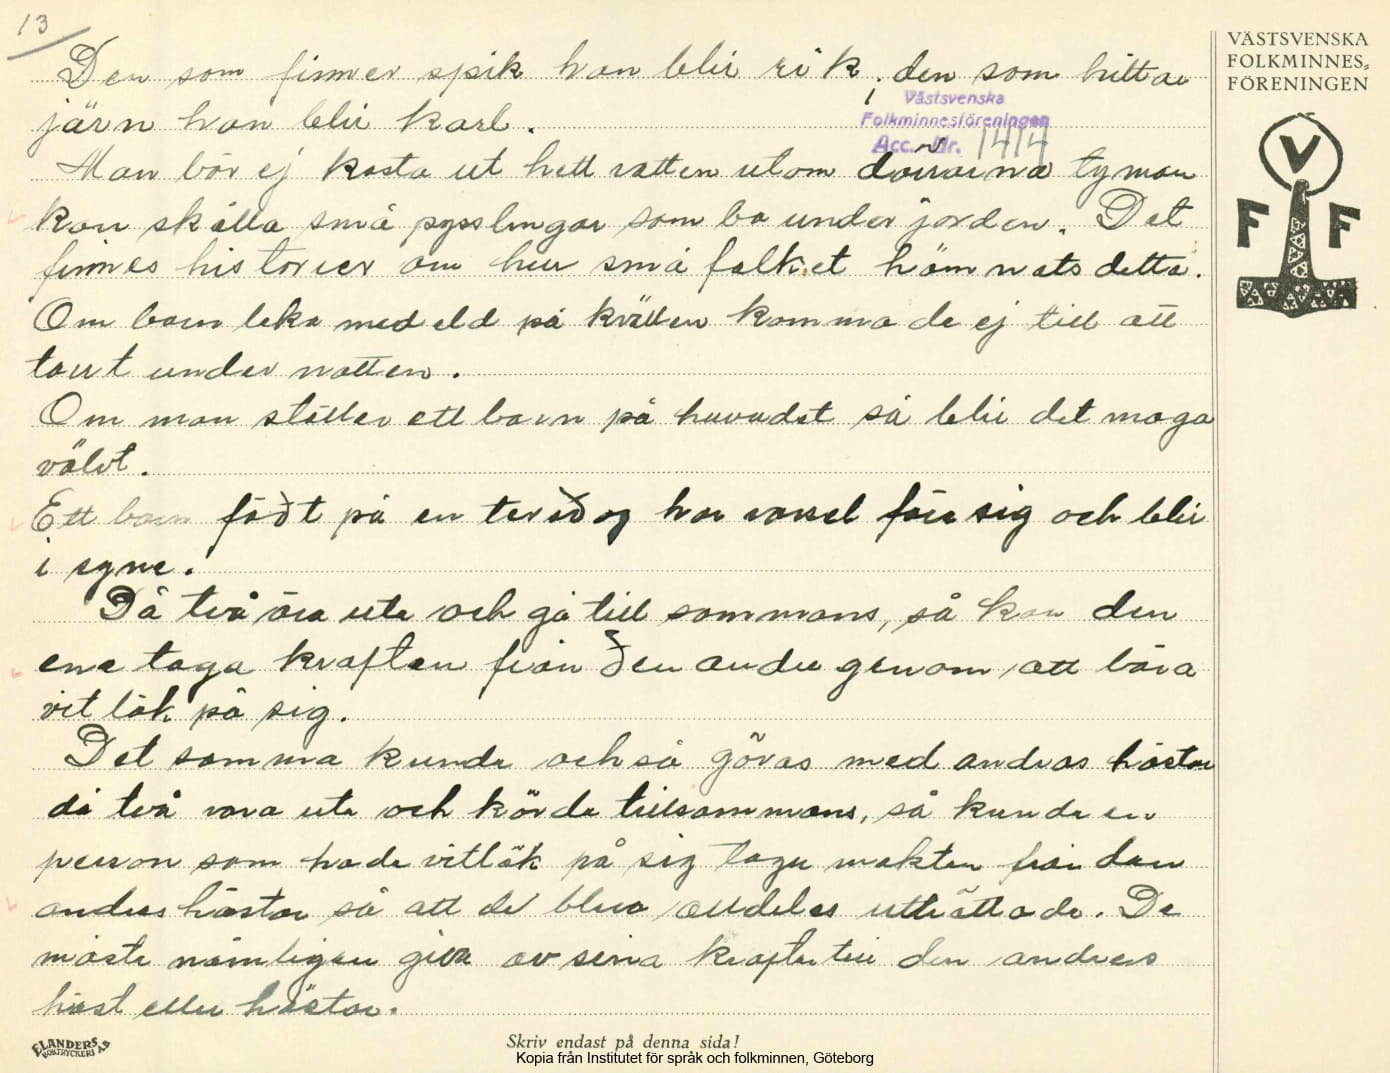 13
Den som finner spik han blir rik, den som hittar
järn han blir karl.
Västsvenska
Folkminnesföreningen
Acc. Nr. 1414
Man bör ej kasta ut hett vatten utom dörrarna ty man
kan skålla små pysslingar som bo under jorden. Det
finnes historier om hur små folket hämnats detta.
Om barn leka med eld på kvällen komma de ej till att
torrt under natten.
Om man ställer ett barn på huvudet så blir det maga
välvt.
Ett barn födt på en torsdag har varsel för sig och blir
i syne.
Då två ära ute och gå till sammans, så kan den
ene taga kraften från den andre genom att bära
vit lök på sig.
Det samma kunde också göras med andras hästar
då två vara ute och körde tillsammans, så kunde en
person som hade vitlök på sig taga makten från den
andres hästar så att de blevo alldeles uttröttade. De
måste nämligen giva av sina krafter till den andres
häst eller hästar.
VÄSTSVENSKA
FOLKMINNES-
FÖRENINGEN
V
F F
ELANDERS
BOKTRYCKERI A.B
Skriv endast på denna sida!
Kopia från Institutet för språk och folkminnen, Göteborg